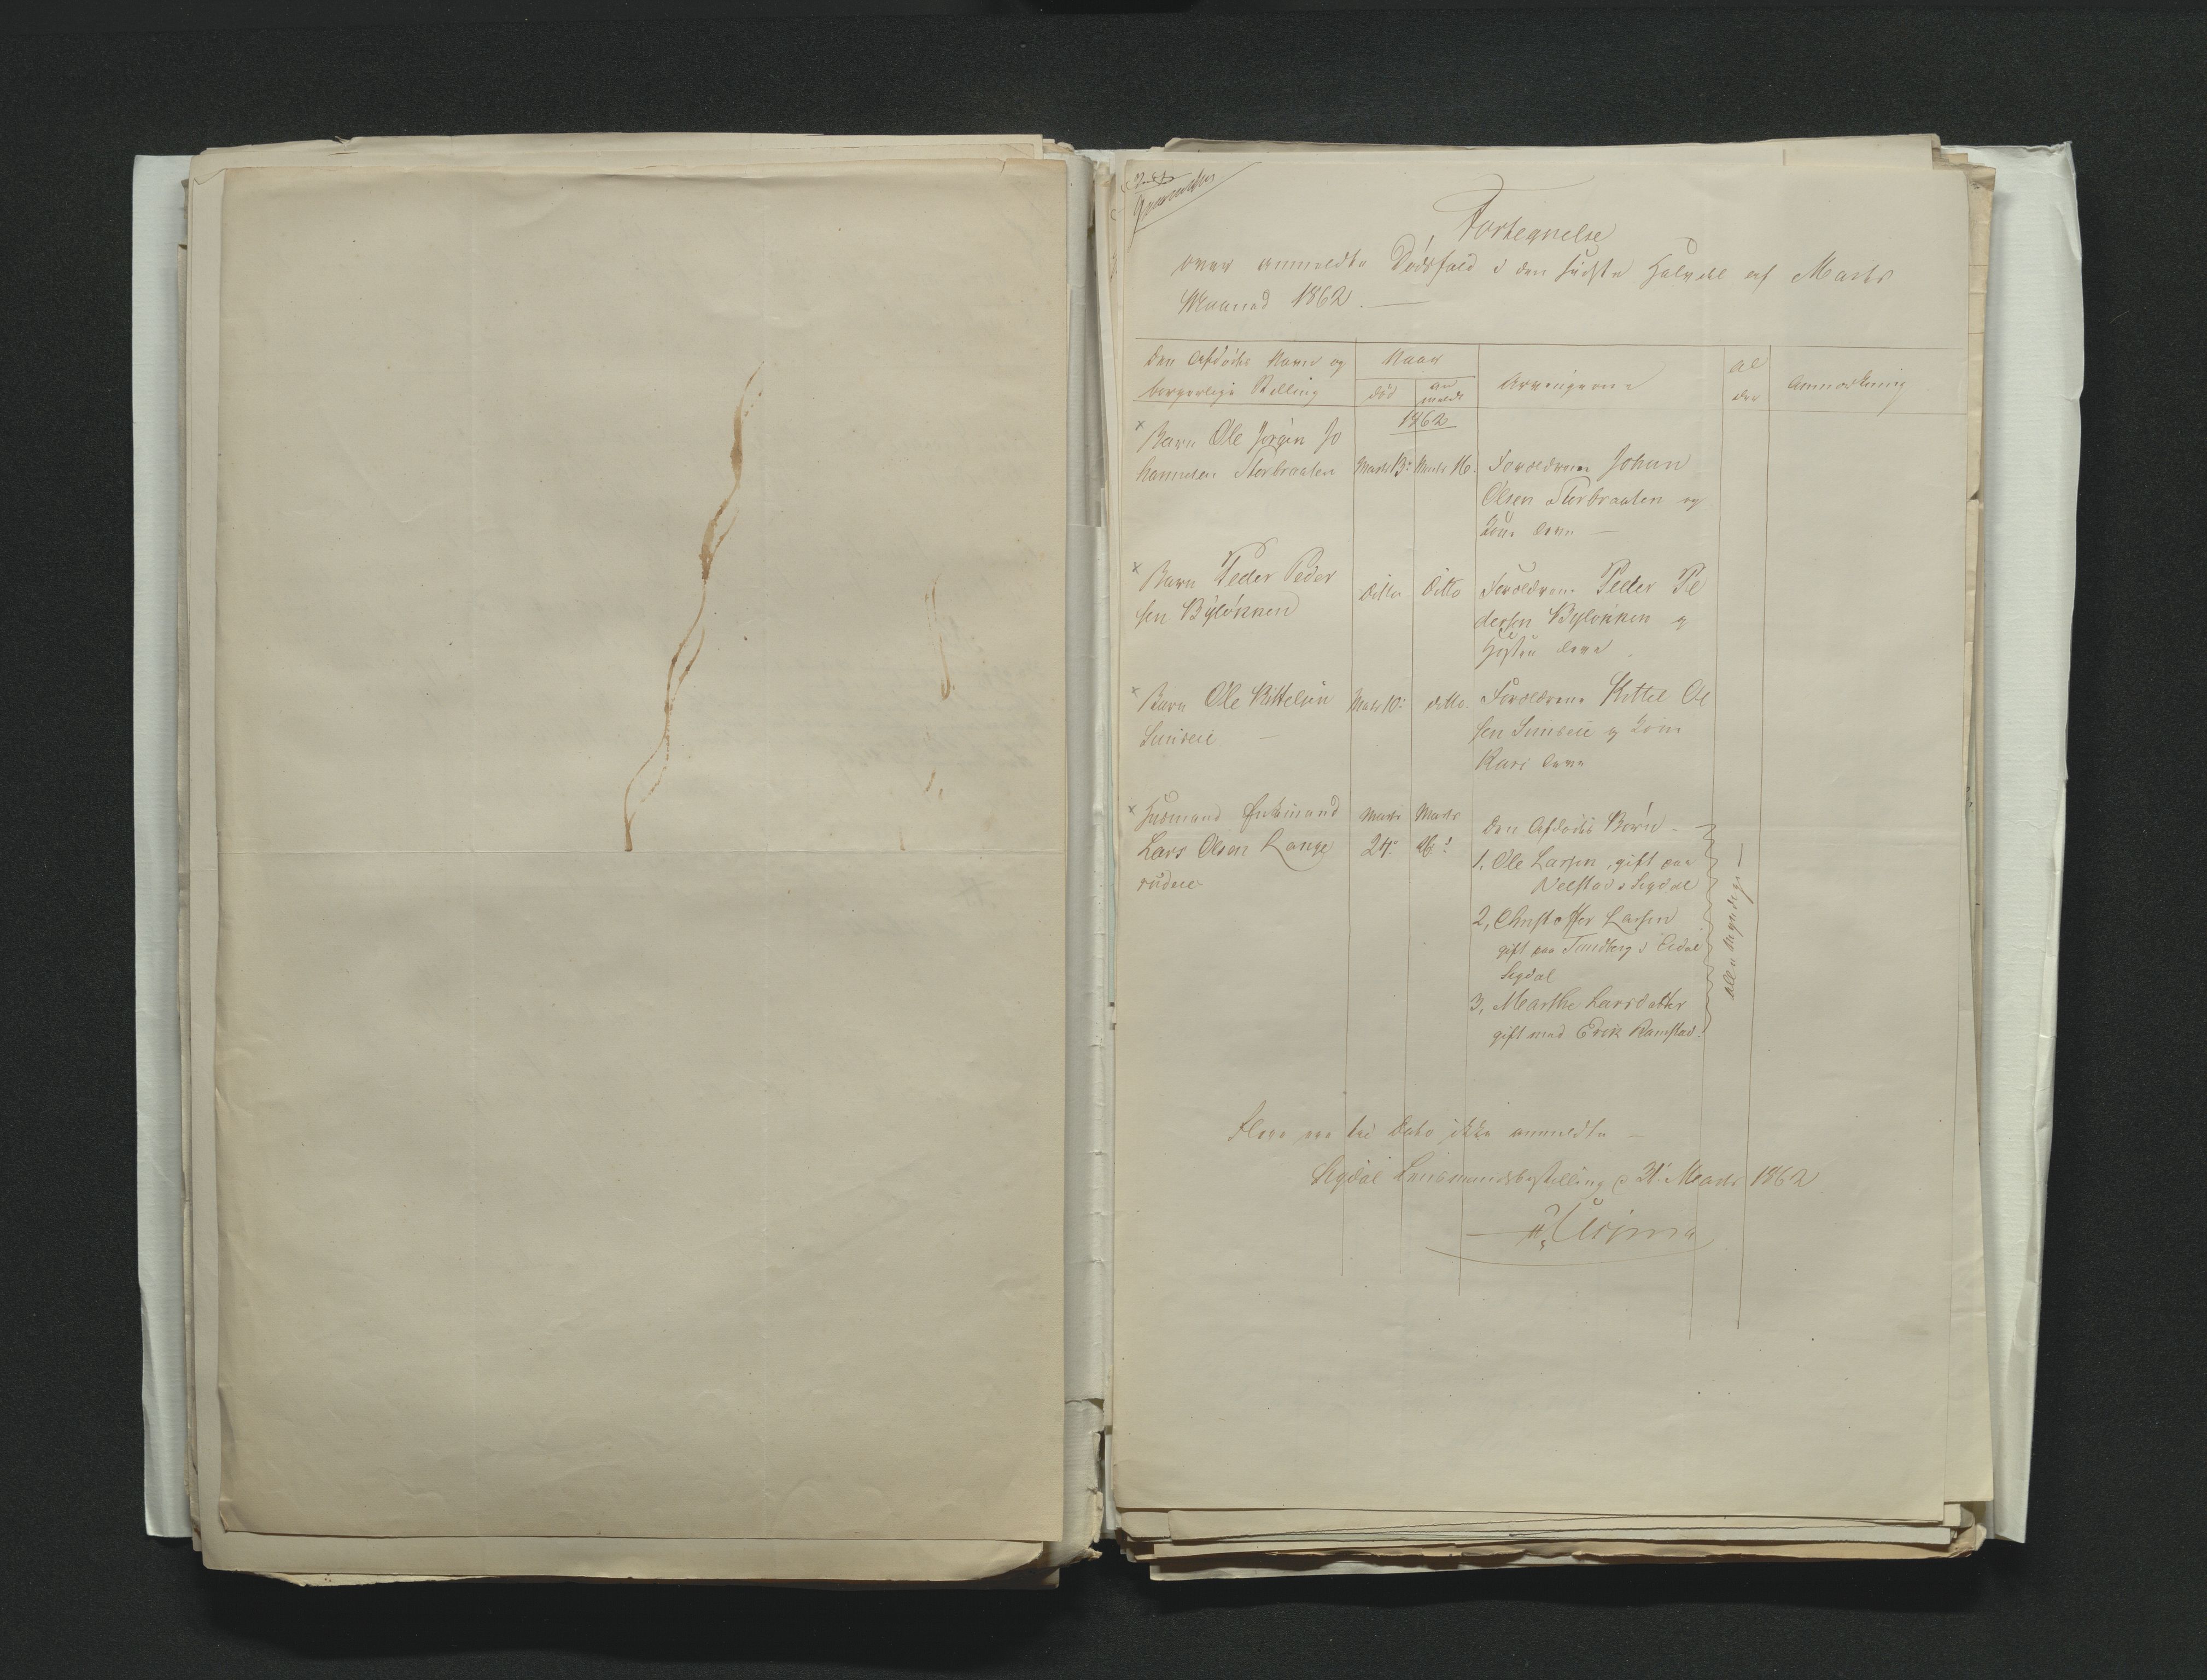 Fortegnelse
over anmeldte Dødsfald i den sidste Halvdel af Marts
Maaned 1862. —
Den Afdødes Navn og
borgerlige Stilling
Naar
død
an
meldt
Arvingerne
Al
der
Anmærkning
1862
x Barn Ole Jørgen Jo
hannesen Storbraaten
Marts 13:
Marts 16.
Forældrene Johan
Olsen Storbraaten og
Kone dersteds —
x Barn Peder Peder
sen Byløkken
Ditto
Ditto
Forældrene Peder Pe
dersen Byløkken og
Hustru
x Barn Ole Kittelsen
—
Marts 10:
ditto.
Forældrene Kittel Ol
sen og Kone
Kari
x Husmand Enkemand
Lars Olsen Lange
rudeie
Marts
24:
Marts
26:
Den Afdødes Børn —
1, Ole Larsen, gift paa
i Sigdal
2, Christoffer Larsen
gift paa i Eidal
Sigdal
3, Marthe Larsdatter
gift med Erik Ramstad.
alle Myndige —
Flere ere til Dato ikke anmeldte —
Sigdal Lensmandsbestilling d 31: Marts 1862